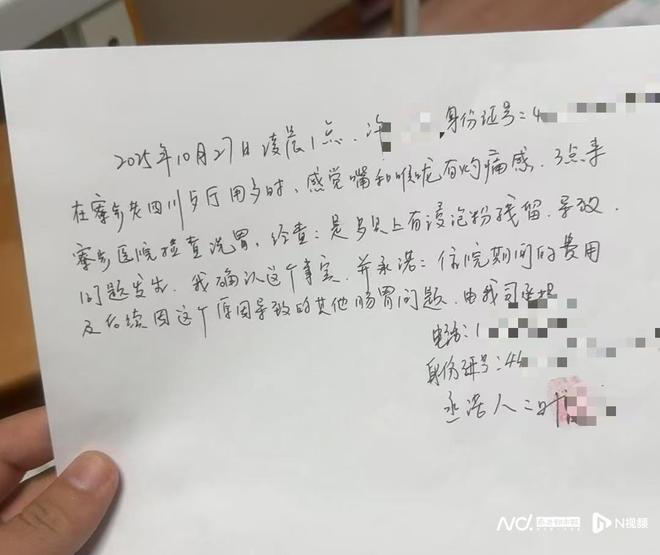 2025年10月27日凌晨1点.许 ,身份证号:4
在寮步老四川乡厅用歺时、感觉嘴和喉咙有灼痛感.3点来
寮步医院检查洗胃.经查:是歺具上有浸泡粉残留.导致.
问题发生.我确认这个事实.并承诺:住院期间的费用
及后续因这个原因导致的其他肠胃问题.由我司承担
电话:1
身份证号:44
承诺人:叶
N视频